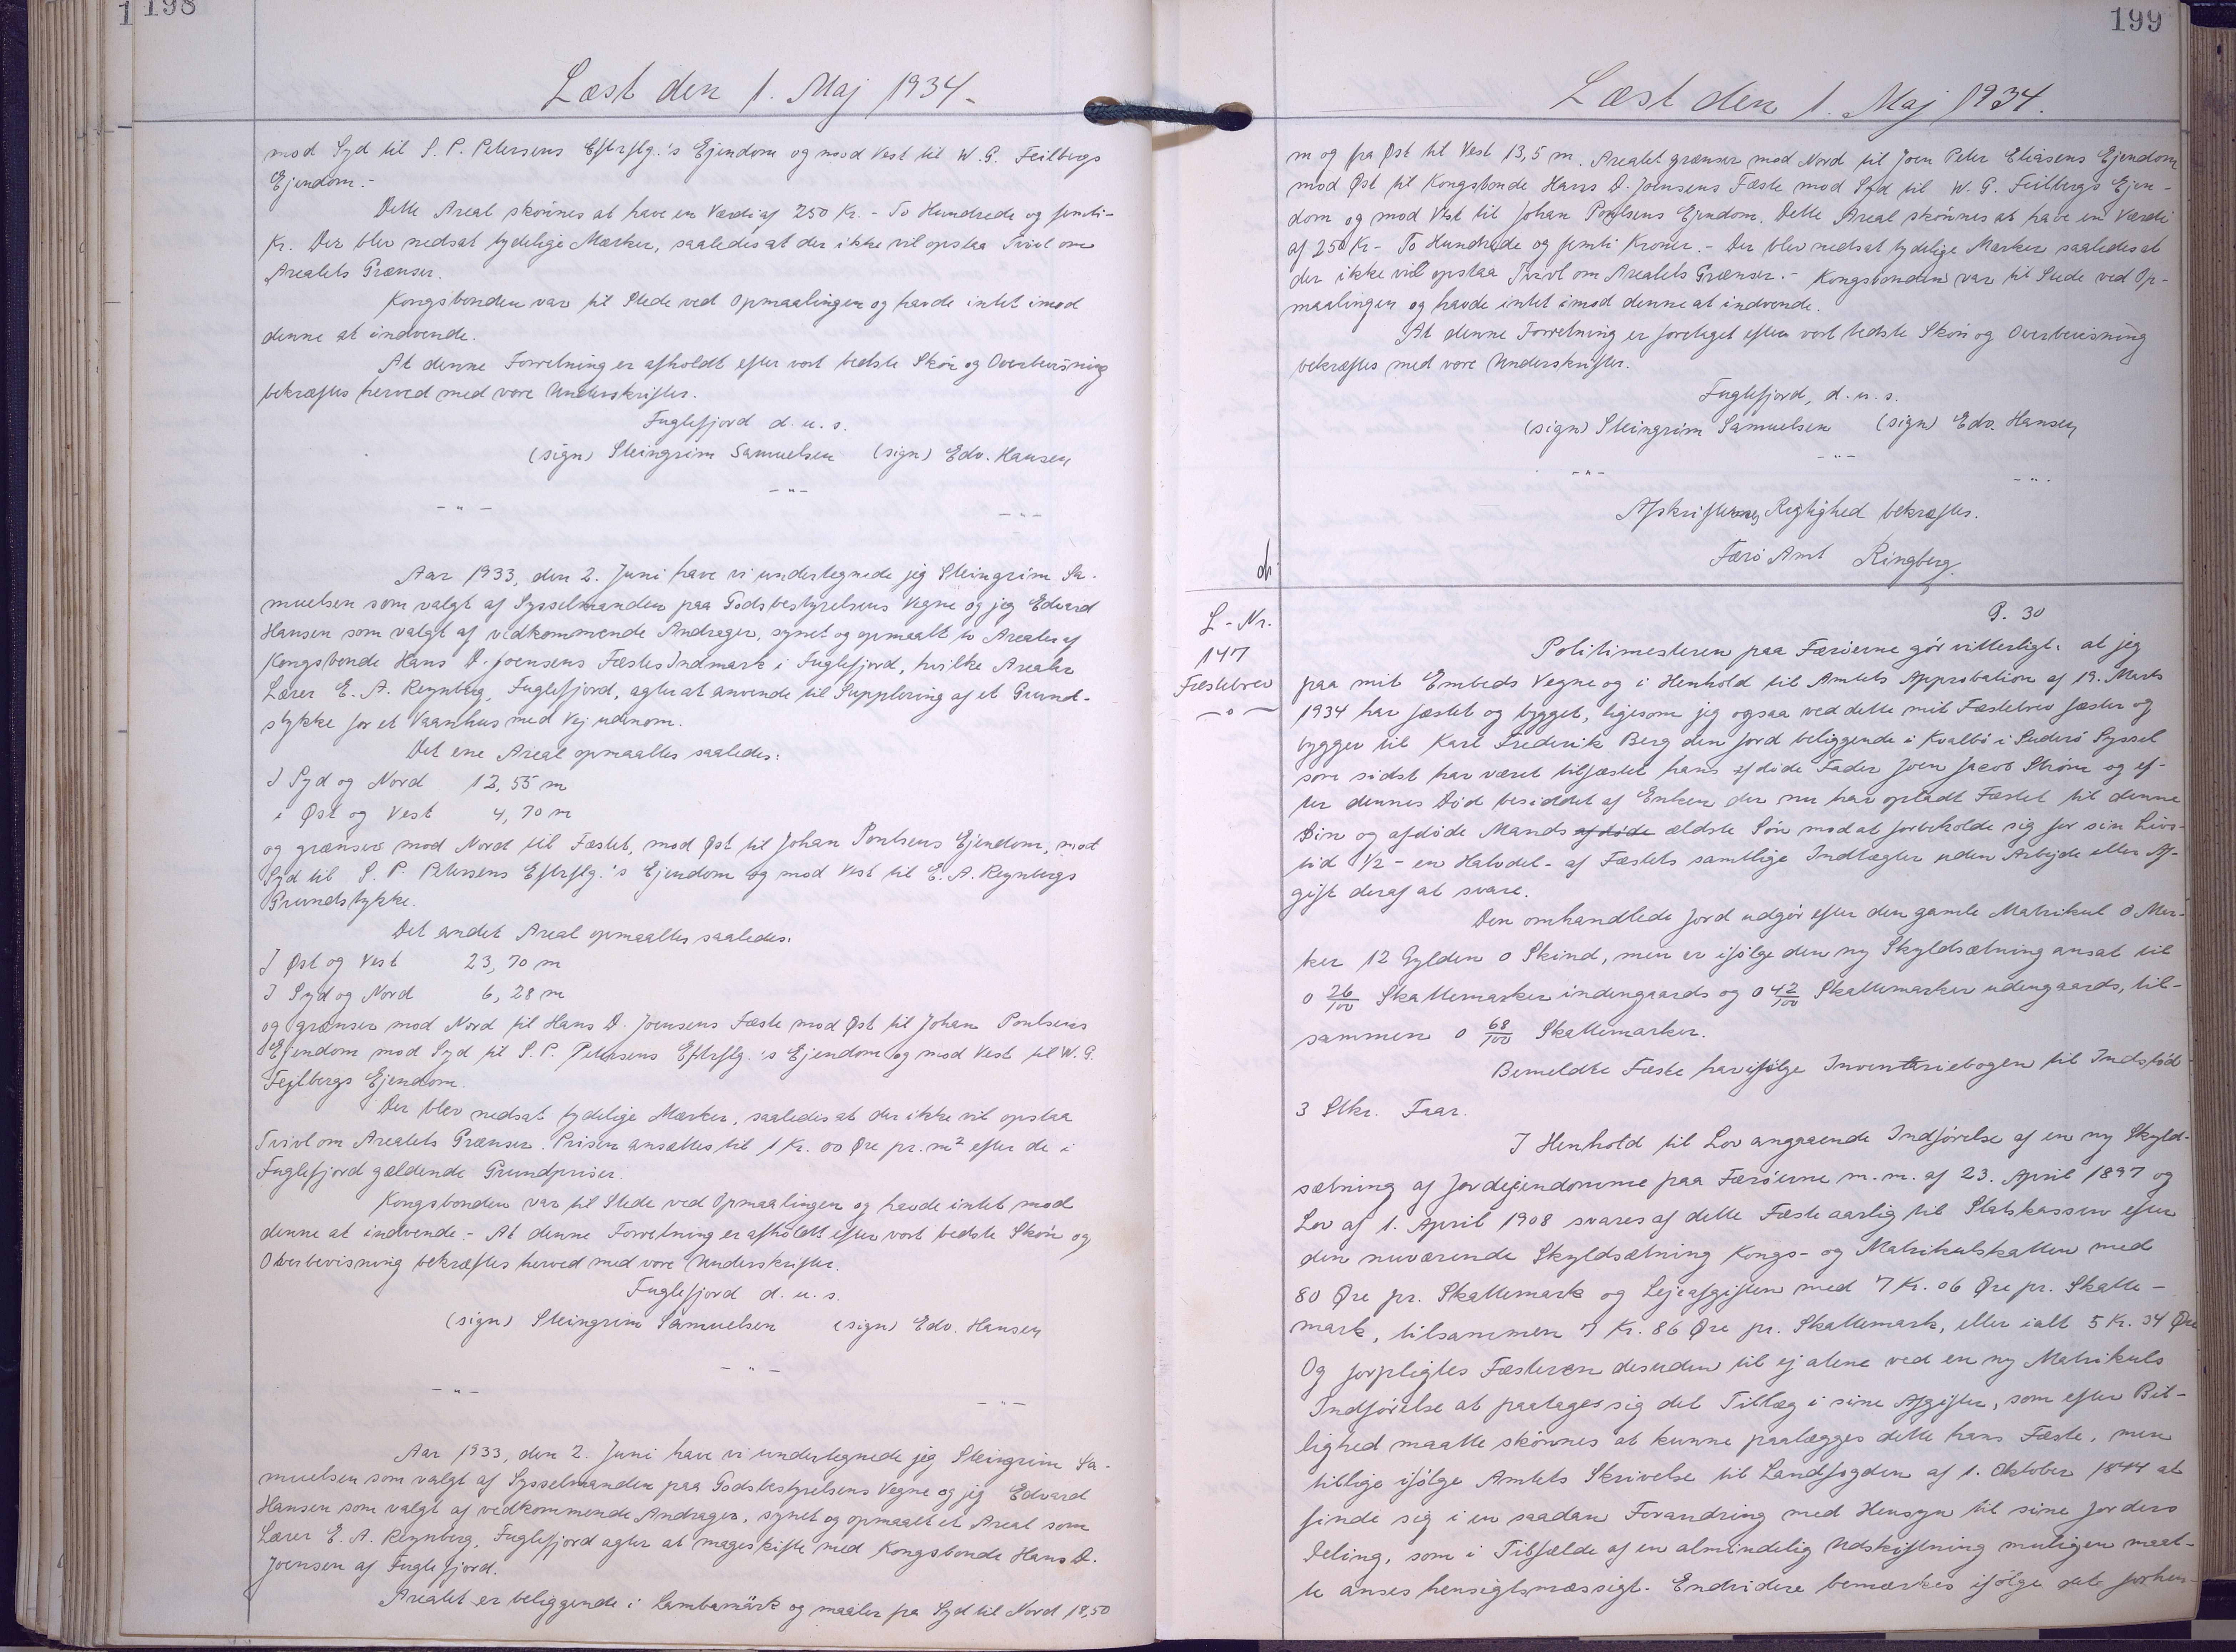 198
Læst den 1. Maj 1934.-
mod Syd til S. P. Petersens Efterflg.'s Ejendom og mod Vest til W. G. Feilbergs
Ejendom.-
Dette Areal skönnes at have en Værdi af 250 Kr. - To Hundrede og femti-
Kr. Der blev nedsat tydelige Mærker, saaledes at der ikke vil opstaa Tvivl om
Arealets Grænser.
Kongsbonden var til Stede ved Opmaalingen og havde intet imod
denne at indvende.
At denne Forretning er afholdt efter vort bedste Skön og Overbevisning
bekræftes herved med vore Underskrifter.
Fuglefjord d. u. s.
(sign) Steingrim Samuelsen (sign) Edv. Hansen
- " - - " - - " -
Aar 1933, den 2. Juni have vi undertegnede jeg Steingrim Sa-
muelsen som valgt af Sysselmanden paa Godsbestyrelsens Vegne og jeg Edvard
Hansen som valgt af vedkommende Andrager, synet og opmaalt to Arealer af
Kongsbonde Hans D. Joensens Fæstes Indmark i Fuglefjord, hvilke Arealer
Lærer E. A. Reynberg, Fuglefjord, agter at anvende til Supplering af et Grund-
stykke for et Vaanhus med Vej udenom.
Det ene Areal opmaaltes saaledes:
I Syd og Nord 12,55 m
i Øst og Vest 4,70 m
og grænser mod Nord til Fæstet, mod Øst til Johan Poulsens Ejendom, mod
Syd til S. P. Petersens Efterflg.'s Ejendom og mod Vest til E. A. Reynbergs
Grundstykke.
Det andet Areal opmaaltes saaledes:
I Øst og Vest 23,70 m
I Syd og Nord 6,28 m
og grænser mod Nord til Hans D. Joensens Fæste mod Øst til Johan Poulsens
Ejendom mod Syd til S. P. Petersens Efterflg.'s Ejendom og mod Vest til W. G.
Fejlbergs Ejendom.
Der blev nedsat tydelige Mærker, saaledes at der ikke vil opstaa
Tvivl om Arealets Grænser. Prisen ansættes til 1 Kr. 00 Øre pr. m² efter de i
Fuglefjord gældende Grundpriser.
Kongsbonden var til Stede ved Opmaalingen og havde intet mod
denne at indvende.- At denne Forretning er afholdt efter vort bedste Skön og
Overbevisning bekræftes herved med vore Underskrifter.
Fuglefjord d. u. s.
(sign) Steingrim Samuelsen (sign) Edv. Hansen
- " - - " - - " -
Aar 1933, den 2. Juni have vi undertegnede jeg Steingrim Sa-
muelsen som valgt af Sysselmanden paa Godsbestyrelsens Vegne og jeg Edvard
Hansen som valgt af vedkommende Andrager, synet og opmaalt et Areal som
Lærer E. A. Reynberg, Fuglefjord agter at mageskifte med Kongsbonde Hans D.
Joensen af Fuglefjord.
Arealet er beliggende i Lambamärk og maaler fra Syd til Nord 18,50
199
Læst den 1. Maj 1934.
m og fra Øst til Vest 13,5 m. Arealet grænser mod Nord til Joen Peter Eliasens Ejendom
mod Øst til Kongsbonde Hans D. Joensens Fæste mod Syd til W. G. Feilbergs Ejen-
dom og mod Vest til Johan Poulsens Ejendom. Dette Areal skönnes at have en Værdi
af 250 Kr - To Hundrede og femti Kroner.- Der blev nedsat tydelige Mærker saaledes at
der ikke vil opstaa Tvivl om Arealets Grænser.- Kongsbonden var til Stede ved Op-
maalingen og havde intet imod denne at indvende.
At denne Forretning er foretaget efter vort bedste Skön og Overbevisning
bekræftes med vore Underskrifter.
Fuglefjord, d. u. s.
(sign) Steingrim Samuelsen (sign) Edv. Hansen
- " - - " - - " -
Afskrifternes Rigtighed bekræftes.
Færö Amt Ringberg.
L-Nr.
147
Fæstebrev
-o-
G. 30
Politimesteren paa Færöerne gör vitterligt: at jeg
paa mit Embeds Vegne og i Henhold til Amtets Approbation af 19. Marts
1934 har fæstet og bygget, ligesom jeg ogsaa ved dette mit Fæstebrev fæster og
bygger til Karl Frederik Berg den Jord beliggende i Kvalbö i Suderö Syssel
som sidst har været tilfæstet hans afdöde Fader Joen Jacob Ström og ef-
ter dennes Död besiddet af Enken der nu har opladt Fæstet til denne
Sin og afdöde Mands afdöde ældste Sön mod at forbeholde sig for sin Livs-
tid 1/2 - en Halvdel - af Fæstets samtlige Indtægter uden Arbejde eller Af-
gift deraf at svare.
Den omhandlede Jord udgör efter den gamle Matrikul 0 Mer-
ker 12 Gylden 0 Skind, men er ifölge den ny Skyldsætning ansat til
0 26/100 Skattemarker indengaards og 0 42/100 Skattemarker udengaards, til-
sammen 0 68/100 Skattemarker.
Bemeldte Fæste har ifölge Inventariebogen til Indstöd
3 Stkr. Faar.
I Henhold til Lov angaaende Indförelse af en ny Skyld-
sætning af Jordejendomme paa Færöerne m.m. af 23. April 1897 og
Lov af 1. April 1908 svares af dette Fæste aarlig til Statskassen efter
den nuværende Skyldsætning Kongs- og Matrikulskatten med
80 Øre pr. Skattemark og Lejeafgiften med 7 Kr. 06 Øre pr. Skatte-
mark, tilsammen 7 Kr. 86 Øre pr. Skattemark, eller ialt 5 Kr. 34 Øre
Og forpligtes Fæsteren desuden til ej alene ved en ny Matrikuls
Indförelse at paatages sig det Tillæg i sine Afgifter, som efter Bil-
lighed maatte skönnes at kunne paalægges dette hans Fæste, men
tillige ifölge Amtets Skrivelse til Landfogden af 1. Oktober 1844 at
finde sig i en saadan Forandring med Hensyn til sine Jorders
Deling, som i Tilfælde af en almindelig Udskiftning muligen maat-
te anses hensigtsmæssigt. Endvidere bemærkes ifölge det forhen-